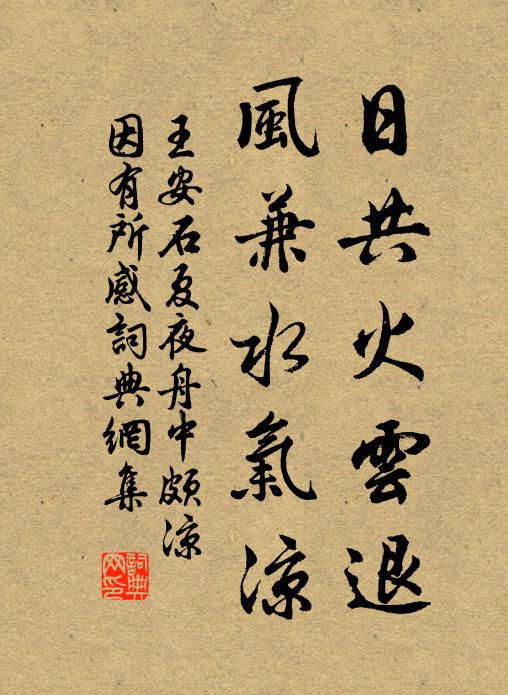 日共火雲退
風兼水氣涼
王安石夏夜舟中頗涼
因有所感詞典網集
詞典
網印